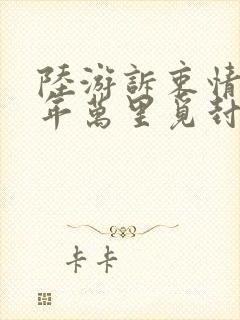 陸游訴衷情
年萬里覓封
卡卡